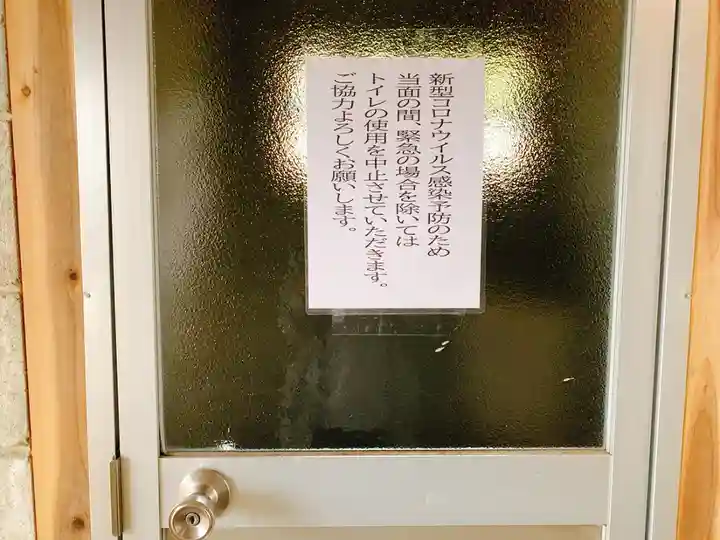 新型コロナウイルス感染予防のため
当面の間、緊急の場合を除いては
トイレの使用を中止させていただきます。
ご協力よろしくお願いします。